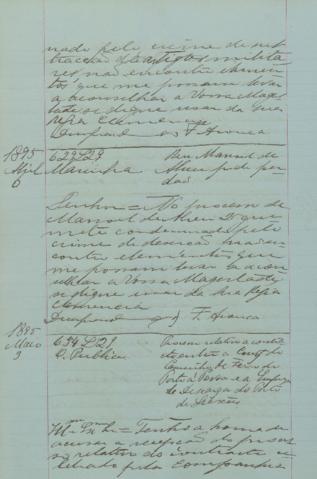 nado pelo crime de sub
tracção de artigos milita
res não encontro elemen
tos que me possam levar
a aconselhar a Vossa Mages
tade se digne usar da Sua
Regia Clemencia
F. Arouca
1895
Abril
6
629 L 29
Marinha
Pau Manoel de
Abreu pede per
dão
Senhor = No processo de
Manoel de Abreu
condemnado pelo
crime de deserção não en
contro elementos que
me possam levar a acon
selhar a Vossa Magestade
se digne usar da Sua Regia
Clemencia
F. Arouca
1895
Maio
3
634 L 29
O. Publicas
Processo relativo a contra
cto entre a Compª do
Caminho de Ferro do
Porto á Povoa e a Empreza
de Descarga do Porto
de Leixões
= Tenho a honra de
accusar a recepção do proces
so relativo do contracto ce
lebrado pela Companhia